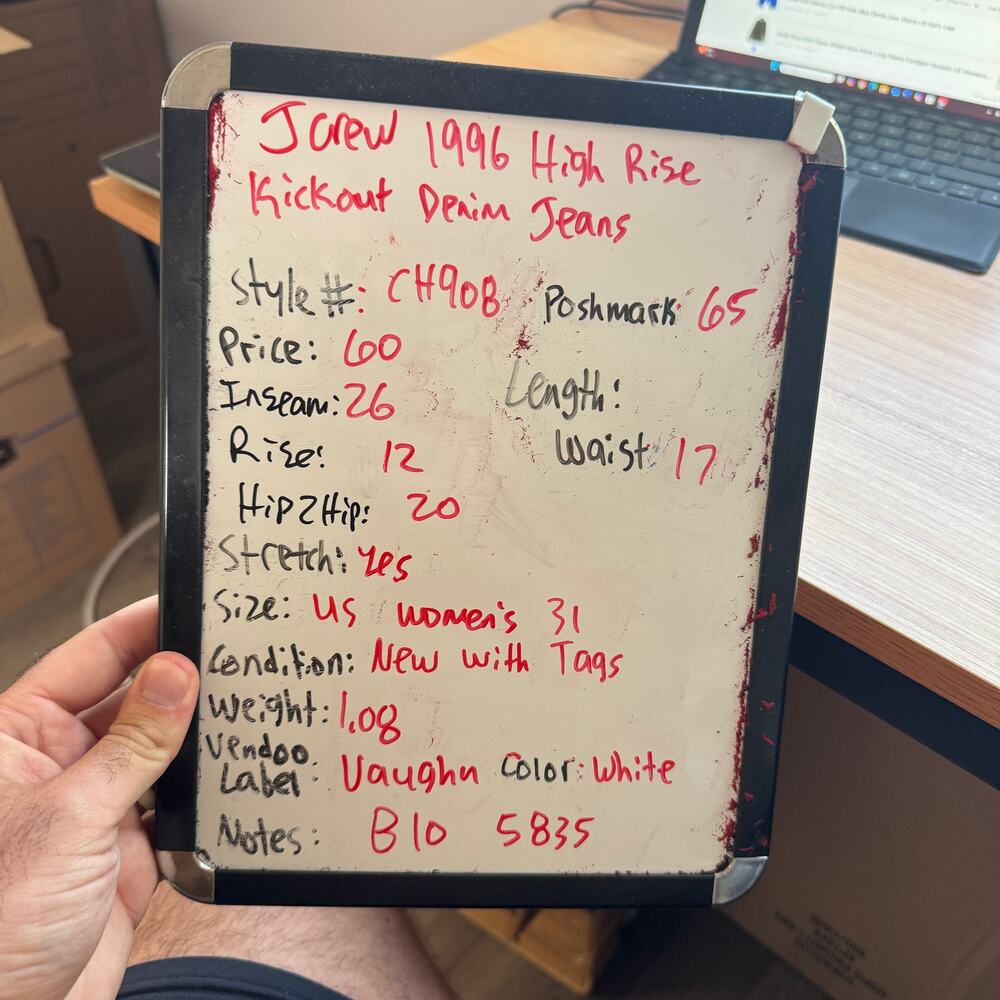 J Crew 1996 High Rise
Kickout Denim Jeans
Style #: CH908 Poshmark 65
Price: 60
Inseam: 26 Length:
Rise: 12 Waist 17
Hip2Hip: 20
Stretch: Yes
Size: US Women's 31
Condition: New with Tags
Weight: 1.08
Vendoo
Label: Vaughn Color: White
Notes: B10 5835